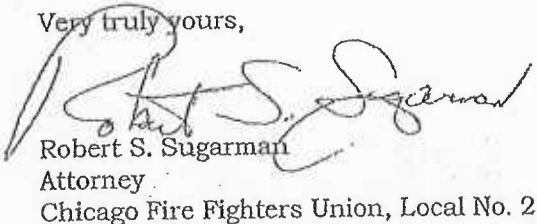 Very truly yours,
Robert S. Sugarman
Robert S. Sugarman
Attorney
Chicago Fire Fighters Union, Local No. 2